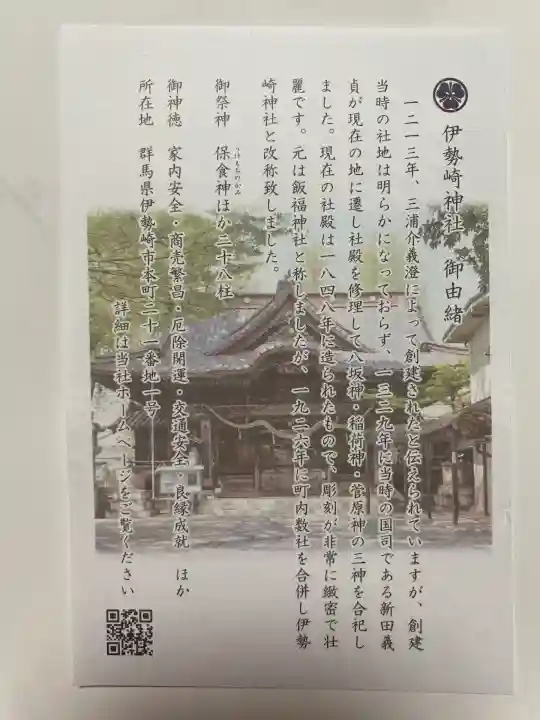 伊勢崎神社 御由緒
一二一三年、三浦介義澄によって創建されたと伝えられていますが、創建
当時の社地は明らかになっておらず、一三二九年に当時の国司である新田義
貞が現在の地に遷し社殿を修理して八坂神・稲荷神・菅原神の三神を合祀し
ました。現在の社殿は一八四八年に造られたもので、彫刻が非常に緻密で壮
麗です。元は飯福神社と称しましたが、一九二六年に町内数社を合併し伊勢
崎神社と改称致しました。
御祭神 保食神ほか三十八柱
うけもちのかみ
御神徳 家内安全・商売繁昌・厄除開運・交通安全・良縁成就 ほか
所在地 群馬県伊勢崎市本町二十一番地一号
詳細は当社ホームページをご覧ください